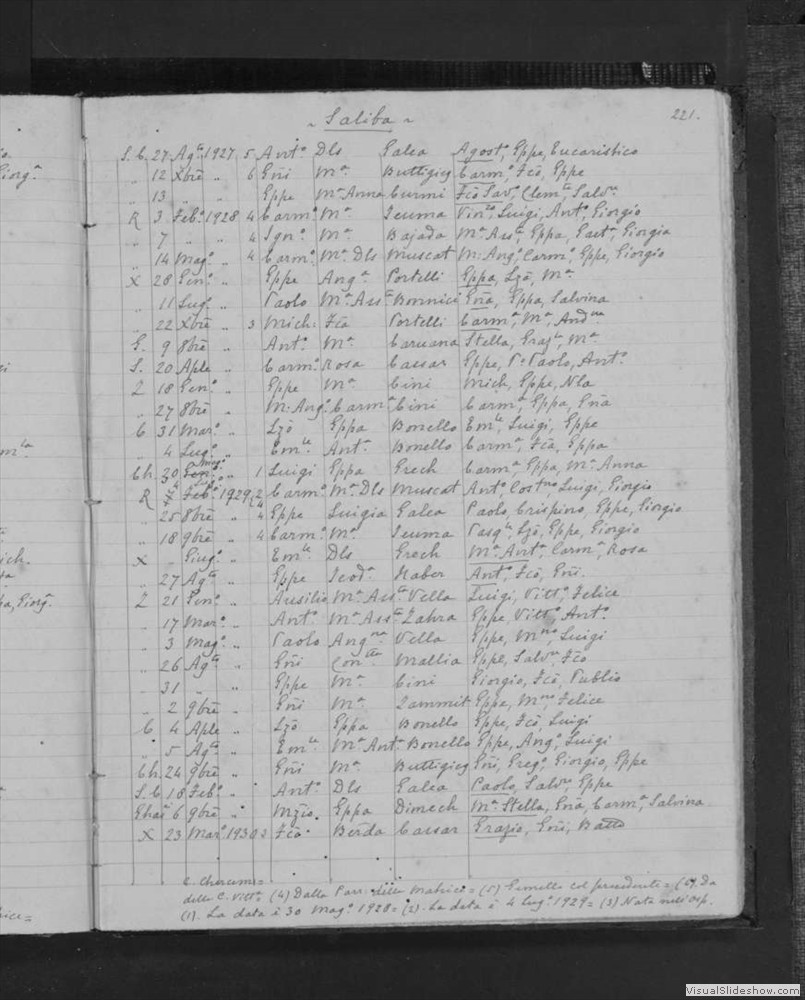 ~ Saliba ~ 221.
S. C. 27 Agto 1927 5 Anto Dls Galea Agosto, Gppe, Eucaristico
" 12 Xbre " 6 Gñi Ma Buttigieg Carmo, Fcõ, Gppe
" 13 " " Gppe Ma Anna Curmi Fcõ Savo, Clemte, Salvre
R 3 Febo 1928 4 Carmo Ma Scuma Vinzo, Luigi, Anto, Giorgio
" 7 " " 4 Igno Ma Bajada Ma Assta, Gppa, Gaeta, Giorgia
" 14 Mago " 4 Carmo Ma Dls Muscat Ma Anga, Carmo, Gppe, Giorgio
X 28 Geno " Gppe Anga Portelli Gppa, Lzã, Ma
" 11 Lugo " Paolo Ma Assta Bonnici Gña, Gppa, Salvina
" 22 Xbre " 3 Mich: Fcã Portelli Carma, Ma, Andna
G. 9 8bre " Anto Ma Caruana Stella, Graza, Ma
S. 20 Aple " Carmo Rosa Cassar Gppe, Po Paolo, Anto
Z 18 Geno " Gppe Ma Cini Mich, Gppe, Nla
" 27 8bre " M: Ango Carma Cini Carma, Gppa, Gña
C 31 Maro " Lzõ Gppa Bonello Emle, Luigi, Gppe
" 4 Lugo " Emle Anta Bonello Carma, Fcã, Gppa
Ch. 30 Geno Mago " 1 Luigi Gppa Grech Carma Gppa, Ma Anna
R 4 Febo Lugo 1929 2 4 Carmo Ma Dls Muscat Anto, Costno, Luigi, Giorgio
" 25 8bre " 4 Gppe Luigia Galea Paolo, Crispino, Gppe, Giorgio
" 18 9bre " 4 Carmo Ma Scuma Pasqle, Lzõ, Gppe, Giorgio
X " Giugo " Emle Dls Grech Ma Anta, Carma, Rosa
" 27 Agto " Gppe Teoda Haber Anto, Fcõ, Gñi
Z 21 Geno " Ausilio Ma Assta Vella Luigi, Vitto, Felice
" 17 Maro " Anto Ma Assta Zahra Gppe, Vitto, Anto
" 3 Mago " Paolo Angna Vella Gppe, Mno, Luigi
" 26 Agto " Gñi Contta Mallia Gppe, Salvre, Fcõ
" 31 " " Gppe Ma Cini Giorgio, Fcõ, Publio
" 2 9bre " Gñi Ma Zammit Gppe, Mno, Felice
C 4 Aple " Lzõ Gppa Bonello Gppe, Fcõ, Luigi
" 5 Agto " Emle Ma Anta Bonello Gppe, Ango, Luigi
Ch. 24 9bre " Gñi Ma Buttigieg Gñi, Grego, Giorgio, Gppe
S. C 18 Febo " Anto Dls Galea Paolo, Salvre, Gppe
Ghas 6 9bre " Nzio Gppa Dimech Ma Stella, Gña, Carma, Salvina
X 23 Maro 1930 3 Fcõ Berda Cassar Grazio, Gñi, Batta
C. Churcumi=
della C. Vitto (4) Dalla Parr: della Matrice = (5) Gemello col precedente = (6) Da
(1). La data è 30 Mago 1928 = (2). La data è 4 Lugo 1929 = (3) Nato nell'osp.
VisualSlideshow.com